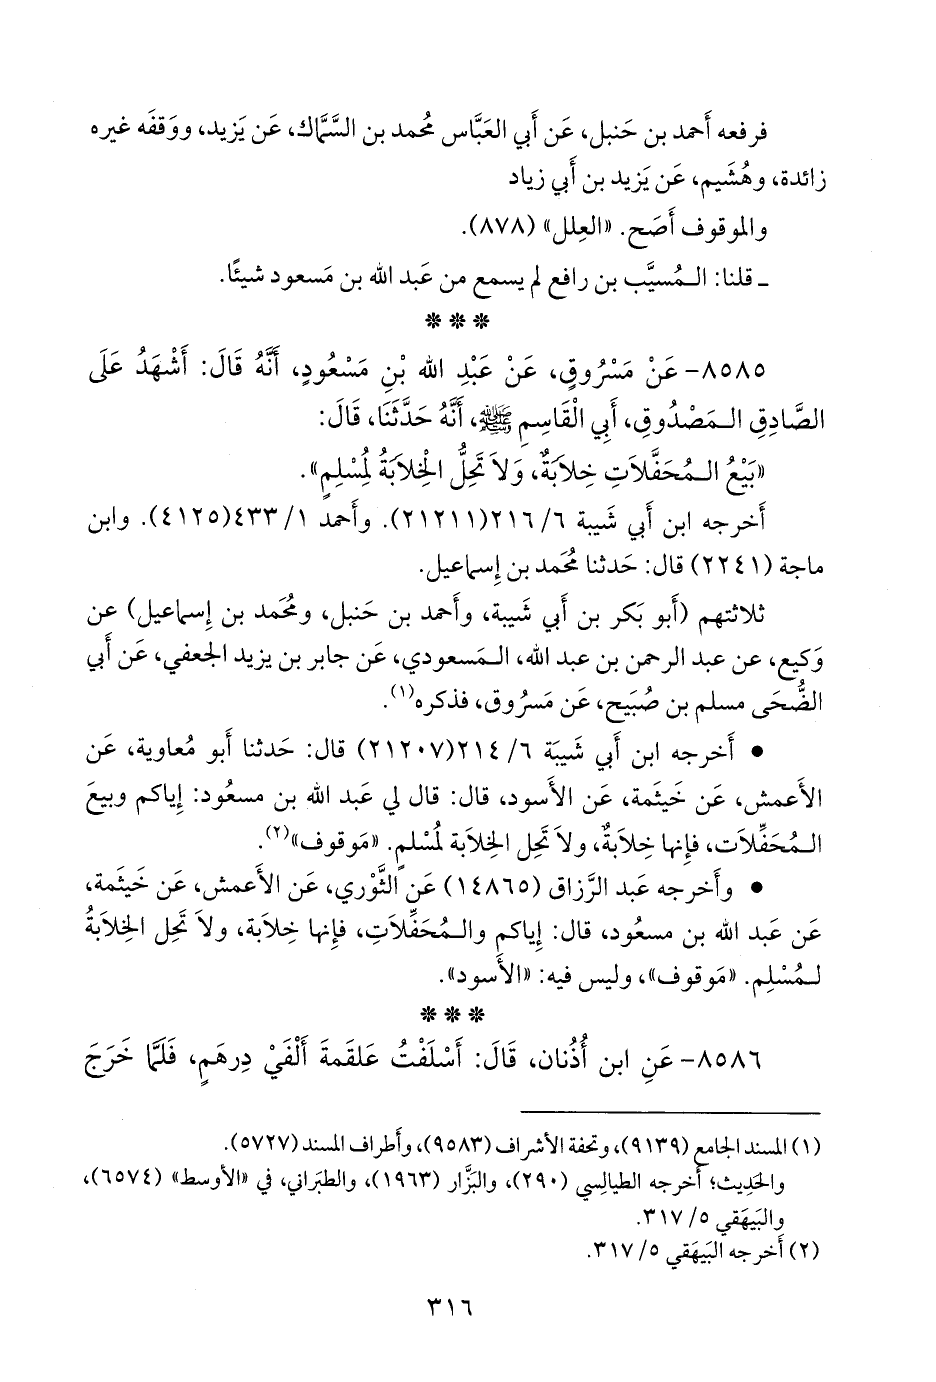 فرفعه أَحمد بن حَنبل، عَن أَبي العَبَّاس مُحمد بن السَّمَّاك، عَن يَزيد، ووَقفَه غيره
زائدة، وهُشَيم، عَن يَزيد بن أَبي زياد
والموقوف أَصَح. «العِلل» (٨٧٨).
ـ قلنا: الـمُسيَّب بن رافع لم يسمع من عَبد الله بن مَسعود شيئًا.
***
٨٥٨٥- عَنْ مَسْرُوقٍ، عَنْ عَبْدِ الله بْنِ مَسْعُودٍ، أَنَّهُ قَالَ: أَشْهَدُ عَلَى
الصَّادِقِ الـمَصْدُوقِ، أَبِي الْقَاسِمِ ﷺ، أَنَّهُ حَدَّثَنَا، قَالَ:
«بَيْعُ الـمُحَفَّلَاتِ خِلاَبَةٌ، وَلاَ تَحِلُّ الْخِلاَبَةُ لِمُسْلِمٍ».
أَخرجه ابن أَبي شَيبة ٦/ ٢١٦(٢١٢١١). وأَحمد ١/ ٤٣٣(٤١٢٥). وابن
ماجة (٢٢٤١) قال: حَدثنا مُحَمد بن إِسماعيل.
ثلاثتهم (أَبو بَكر بن أَبي شَيبة، وأَحمد بن حَنبل، ومُحَمد بن إِسماعيل) عن
وَكيع، عن عبد الرحمن بن عبد الله، الـمَسعودي، عَن جابر بن يزيد الجعفي، عَن أَبي
الضُّحَى مسلم بن صُبَيح، عَن مَسرُوق، فذكره(١).
• أَخرجه ابن أَبي شَيبَة ٦/ ٢١٤(٢١٢٠٧) قال: حَدثنا أَبو مُعاوية، عَن
الأَعمش، عَن خَيثمة، عَن الأَسود، قال: قال لي عَبد الله بن مسعُود: إِياكم وبيعَ
الـمُحَفِّلَات، فإِنها خِلاَبَةٌ، ولاَ تَحِل الخِلاَبة لمُسْلمٍ. «مَوقوف»(٢).
• وأَخرجه عَبد الرَّزاق (١٤٨٦٥) عَن الثَّوْري، عَن الأَعمش، عَن خَيثمة،
عَن عَبد الله بن مسعُود، قال: إِياكم والـمُحَفِّلَاتِ، فإِنها خِلاَبة، ولاَ تَحِل الخِلاَبةُ
لـمُسْلِم. «مَوقوف»، وليس فيه: «الأَسود».
***
٨٥٨٦- عَنِ ابن أُذُنان، قَالَ: أَسْلَفْتُ عَلقمةَ أَلْفَيْ دِرهَمٍ، فَلَمَّا خَرَجَ
(١) المسند الجامع (٩١٣٩)، وتحفة الأشراف (٩٥٨٣)، وأَطراف المسند (٥٧٢٧).
والحَدِيث؛ أَخرجه الطيالِسي (٢٩٠)، والبَزَّار (١٩٦٣)، والطبَراني، في «الأَوسط» (٦٥٧٤)،
والبَيهَقي ٥/ ٣١٧.
(٢) أَخرجه البَيهَقي ٥/ ٣١٧.
٣١٦